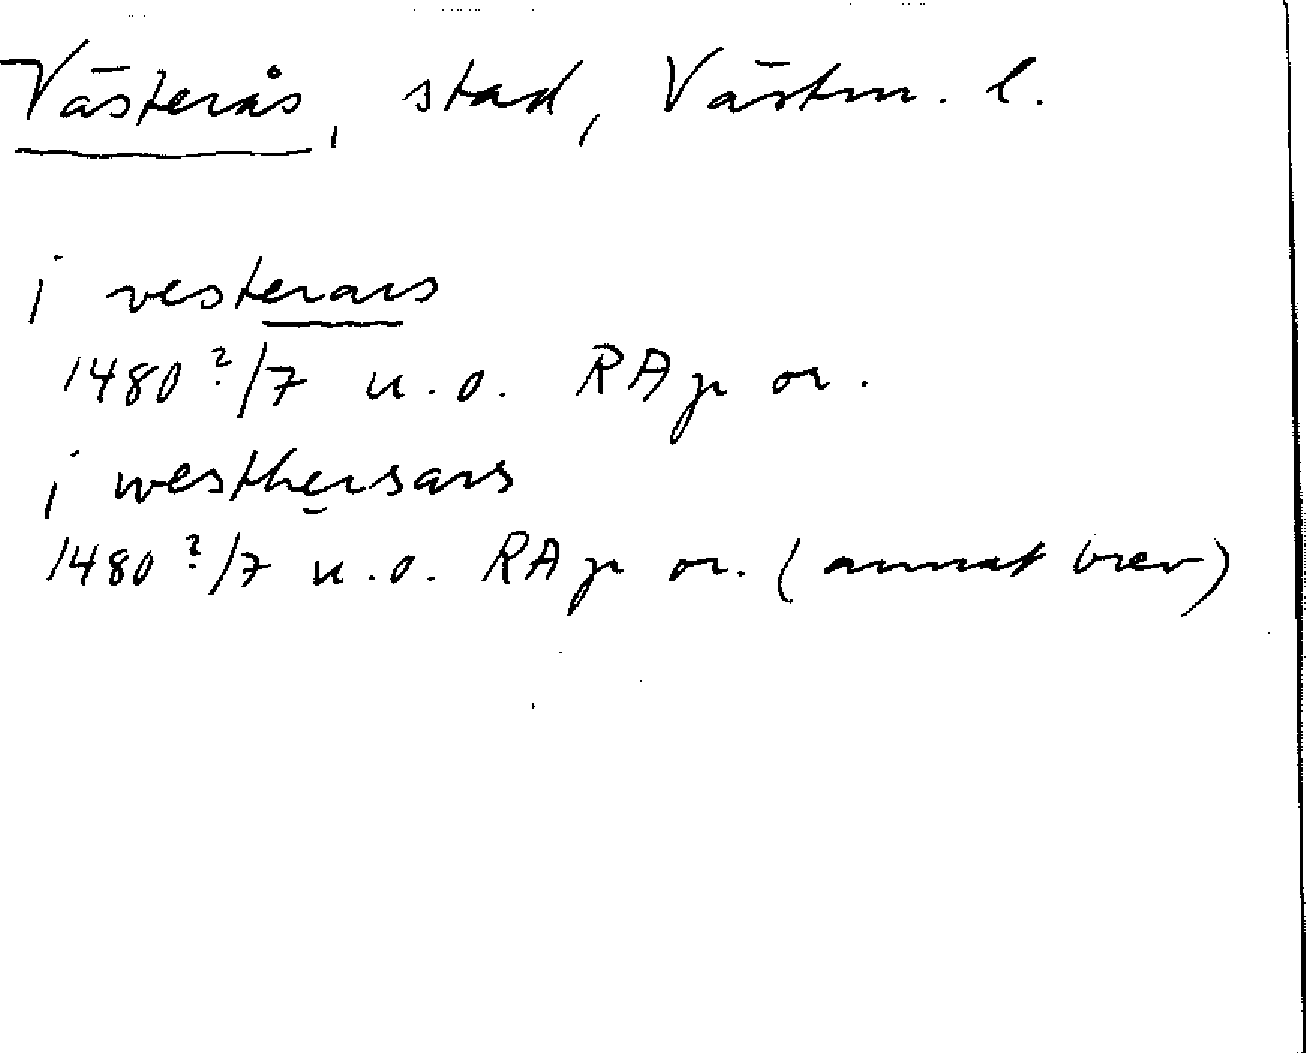 Västerås, stad, Västm. l.
i vesterars
1480 ?/7 u.o. RAp or.
i westhersars
1480 ?/7 u.o. RAp or. (annat brev)